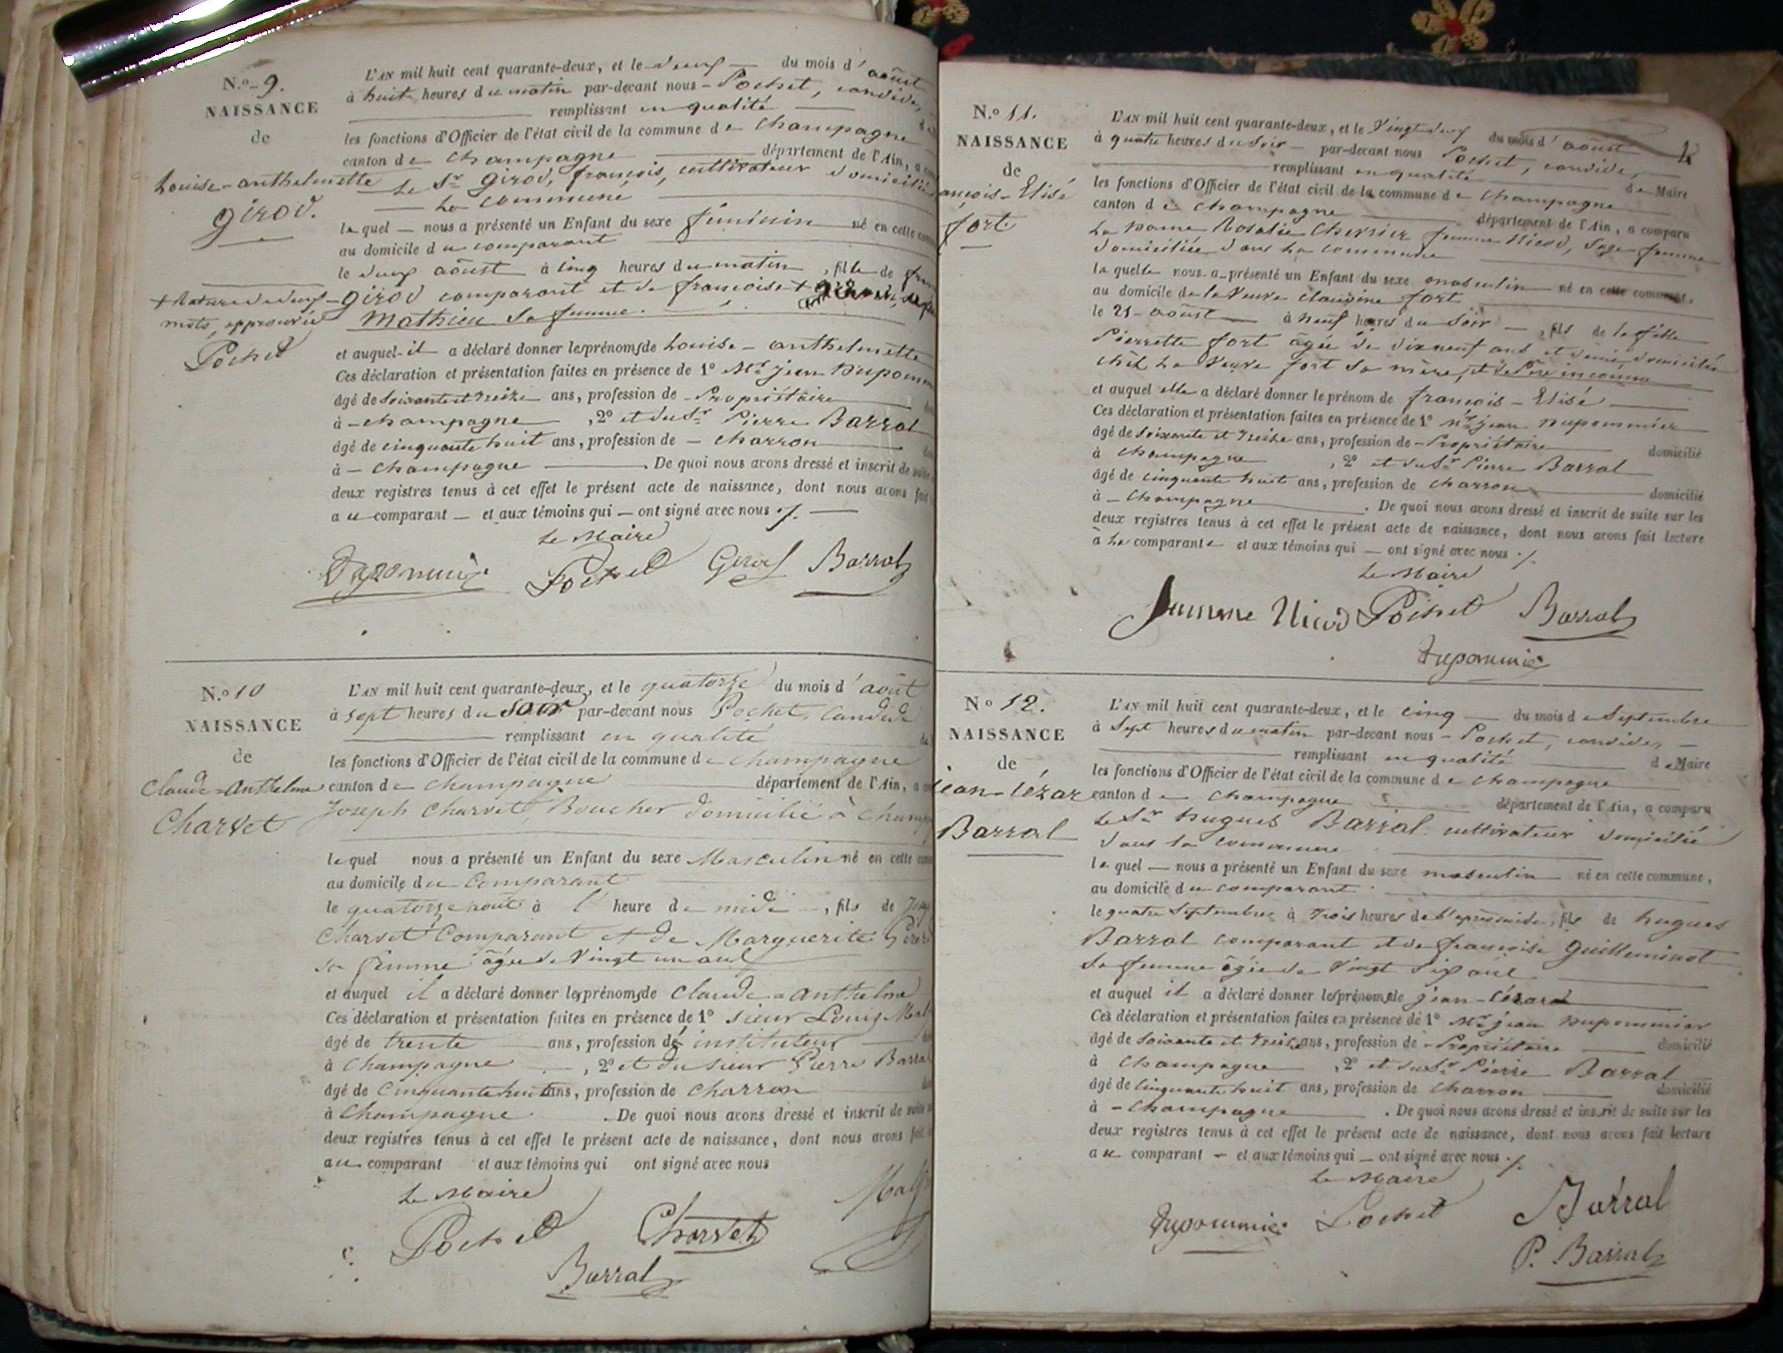 N.º 9.
NAISSANCE
de
Louise-anthelmette
girod.
+ Rature de deux
mots, approuvée
Pochet
L'AN mil huit cent quarante-deux, et le deux du mois d'août
à huit heures du matin par-devant nous Pochet, candide,
remplissant en qualité
les fonctions d'Officier de l'état civil de la commune de champagne
canton de champagne département de l'Ain, a
Le Sr girod, françois, cultivateur domicilié
La commune
lequel nous a présenté un Enfant du sexe féminin né en cette
au domicile du comparant
le deux août à cinq heures du matin, fille de
girod comparant et de françoise +
Mathieu sa femme.
et auquel il a déclaré donner les prénoms de Louise-anthelmette
Ces déclaration et présentation faites en présence de 1º Mr jean Dupommier
âgé de soixante et treize ans, profession de Propriétaire
à champagne, 2º et du Sr Pierre Barral
âgé de cinquante huit ans, profession de charron
à champagne. De quoi nous avons dressé et inscrit de suite
deux registres tenus à cet effet le présent acte de naissance, dont nous avons fait
au comparant et aux témoins qui ont signé avec nous ./.
Le Maire
Dupommier Pochet Girod Barral
N.º 10
NAISSANCE
de
Claude-Anthelme
Charvet
L'AN mil huit cent quarante-deux, et le quatorze du mois d'août
à sept heures du soir par-devant nous Pochet, Candide
remplissant en qualité de
les fonctions d'Officier de l'état civil de la commune de champagne
canton de champagne département de l'Ain, a
Joseph Charvet, Boucher domicilié à Champ
lequel nous a présenté un Enfant du sexe Masculin né en cette
au domicile du Comparant
le quatorze août à l' heure de midi, fils de Jos
Charvet Comparant et de Marguerite
sa femme âgée de vingt un ans
et auquel il a déclaré donner les prénoms de Claude-Anthelme
Ces déclaration et présentation faites en présence de 1º sieur Louis
âgé de trente ans, profession d'instituteur
à Champagne, 2º et du sieur Pierre Barral
âgé de Cinquante huit ans, profession de Charron
à Champagne. De quoi nous avons dressé et inscrit de suite
deux registres tenus à cet effet le présent acte de naissance, dont nous avons fait
au comparant et aux témoins qui ont signé avec nous
Le Maire
Pochet Charvet
Barral
N.º 11.
NAISSANCE
de
ançois-Elisé
fort.
L'AN mil huit cent quarante-deux, et le Vingt deux du mois d'août
à quatre heures du soir par-devant nous Pochet, candide,
remplissant en qualité de Maire
les fonctions d'Officier de l'état civil de la commune de champagne
canton de champagne département de l'Ain, a comparu
La Dame Rosalie Cherrier femme Nicod, sage femme
domiciliée dans La commune
laquelle nous a présenté un Enfant du sexe masculin né en cette commune,
au domicile de la Veuve claudine fort
le 21 août à neuf heures du soir, fils de la fille
Pierrette fort âgée de dix neuf ans et demi domiciliée
chez La Veuve fort sa mère, et de Père inconnu
et auquel elle a déclaré donner le prénom de françois-Elisé
Ces déclaration et présentation faites en présence de 1º Mr jean Dupommier
âgé de soixante et treize ans, profession de Propriétaire domicilié
à champagne, 2º et du Sr Pierre Barral
âgé de cinquante huit ans, profession de charron domicilié
à champagne. De quoi nous avons dressé et inscrit de suite sur les
deux registres tenus à cet effet le présent acte de naissance, dont nous avons fait lecture
à La comparante et aux témoins qui ont signé avec nous ./.
Le Maire
femme Nicod Pochet Barral
Dupommier
Nº 12.
NAISSANCE
de
jean-Cézar
Barral
L'AN mil huit cent quarante-deux, et le cinq du mois de Septembre
à Sept heures du matin par-devant nous Pochet, candide,
remplissant en qualité de Maire
les fonctions d'Officier de l'état civil de la commune de champagne
canton de champagne département de l'Ain, a comparu
Le Sr hugues Barral cultivateur domicilié
dans La commune
lequel nous a présenté un Enfant du sexe masculin né en cette commune,
au domicile du comparant
le quatre Septembre à trois heures de l'après midi, fils de hugues
Barral comparant et de françoise guilleminot
sa femme âgée de vingt six ans
et auquel il a déclaré donner les prénoms de jean-Cézar
Ces déclaration et présentation faites en présence de 1º Mr jean Dupommier
âgé de soixante et treize ans, profession de Propriétaire domicilié
à champagne, 2º et du Sr Pierre Barral
âgé de cinquante huit ans, profession de charron domicilié
à champagne. De quoi nous avons dressé et inscrit de suite sur les
deux registres tenus à cet effet le présent acte de naissance, dont nous avons fait lecture
au comparant et aux témoins qui ont signé avec nous ./.
Le Maire
Dupommier Pochet Barral
P. Barral